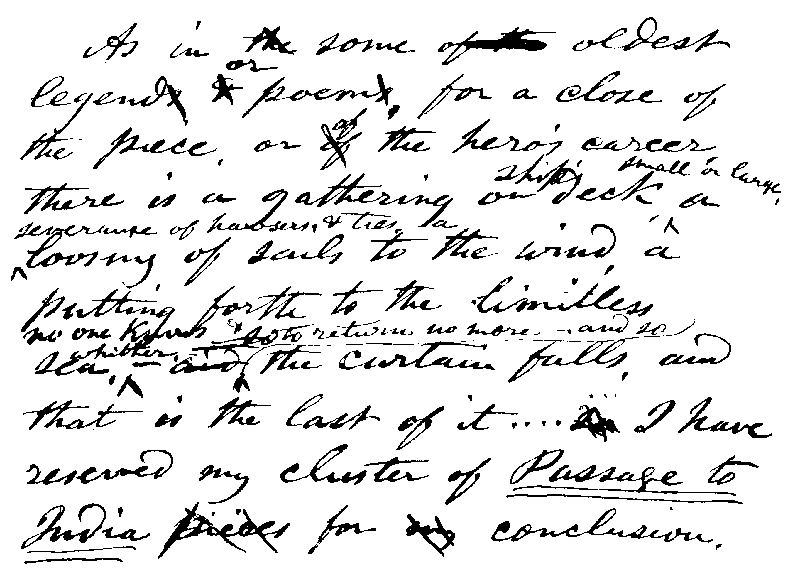 As in the some of the oldest
or
legends & poems, for a close of
of
the piece, or if the hero's career
ship's small or large,
there is a gathering on deck, a
severance of hawsers & ties, a
loosing of sails to the wind, a
putting forth to the limitless
no one knows & so to return no more - and so
whither,
sea, - and the curtain falls, and
that is the last of it .... I have
reserved my cluster of Passage to
India pieces for my conclusion.